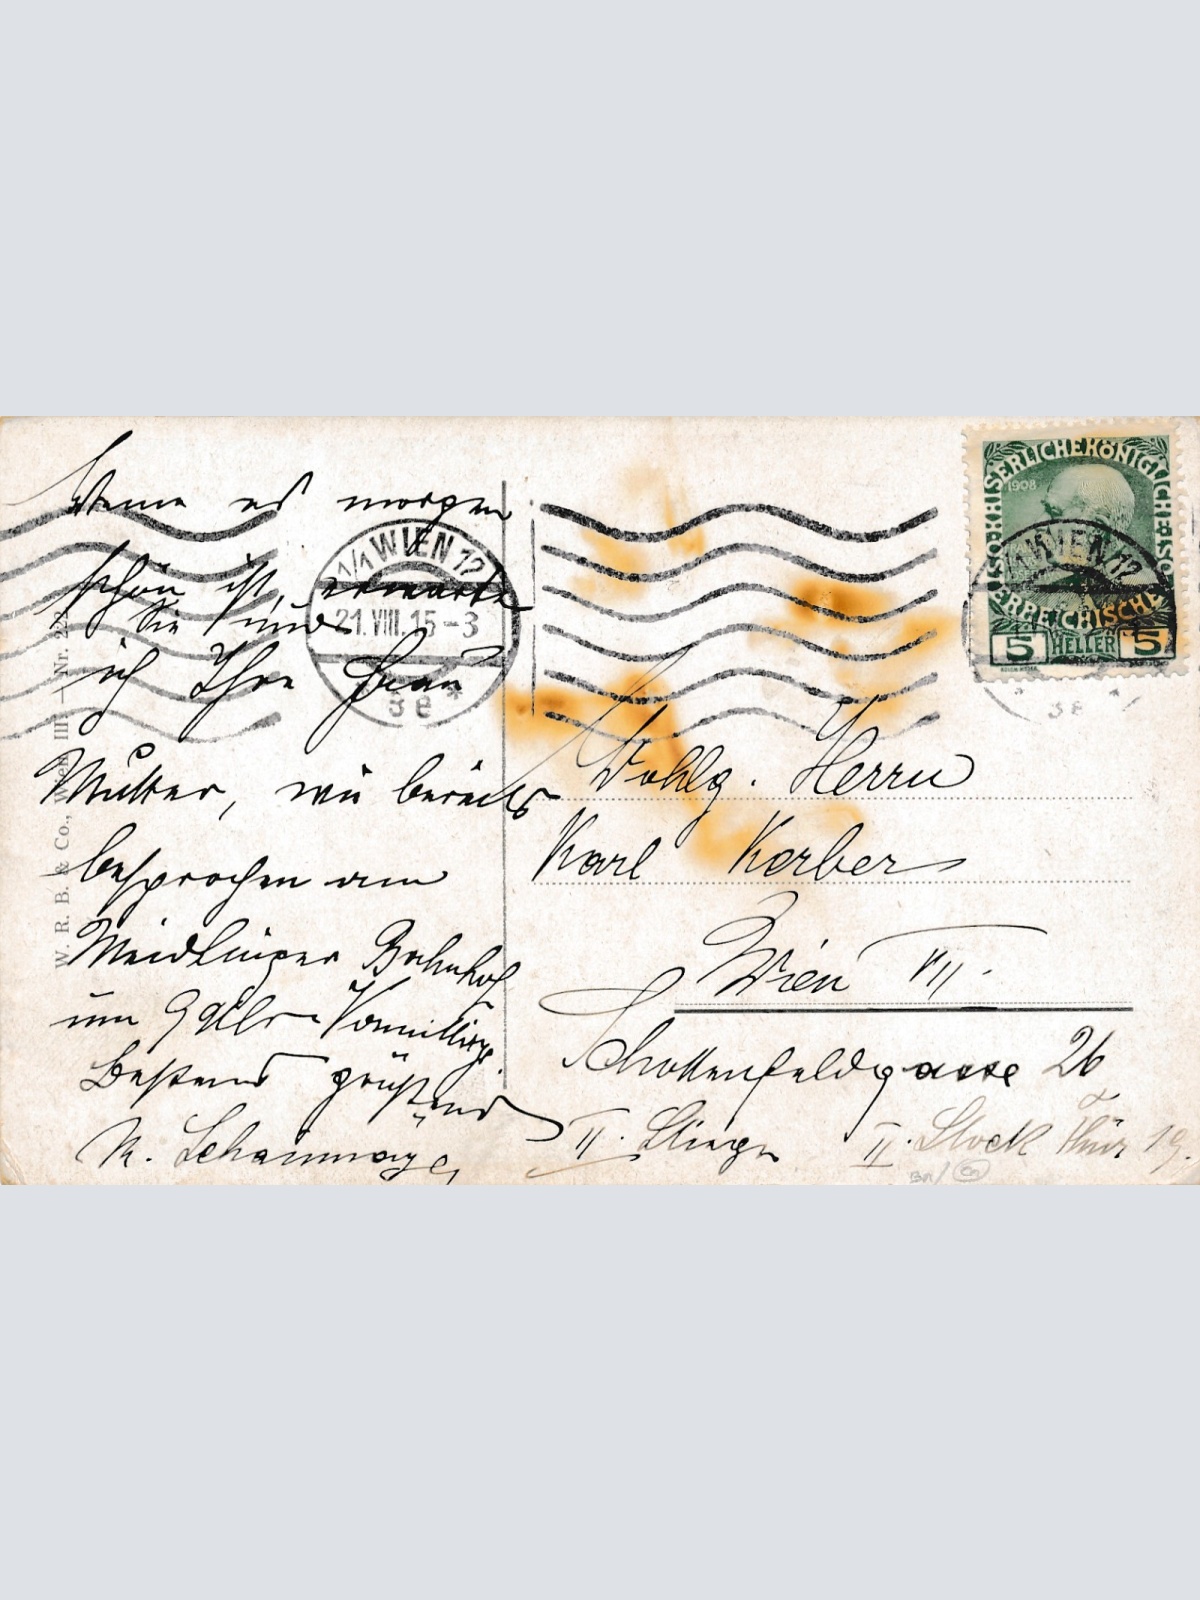 Wenn es morgen
schön ist, erwarte
Sie und
ich Ihre Frau
Mutter, wie bereits
besprochen am
Meidlinger Bahnhof
um 9 Uhr Vormittag.
Bestens grüßend
W. R. B. & Co., Wien III — Nr. 22
1/1 WIEN 12
21.VIII.15-3
3e
KAISERLICHE KÖNIGLICHE
ÖSTERREICHISCHE
1908
5 HELLER 5
1/1 WIEN 12
3e
Wohlg. Herrn
Karl Kerber
Wien VII.
Schottenfeldgasse 26
II. Stiege II. Stock Thür 19.